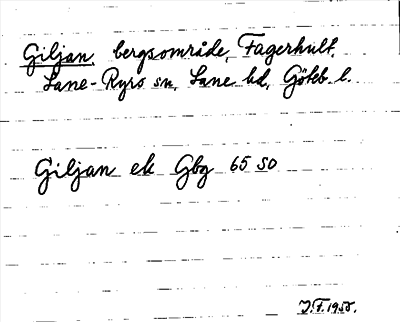 Giljan, bergsområde, Fagerhult,
Lane-Ryrs sn, Lane hd, Göteb. l.
Giljan ek Gbg 65 SO